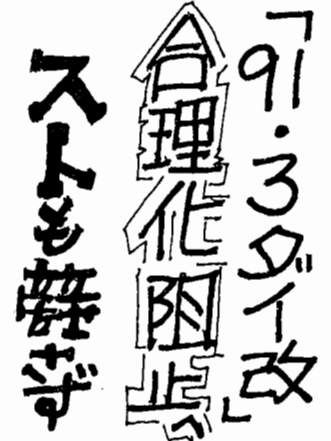 「91・3ダイ改」
合理化阻止へ
ストも辞さず